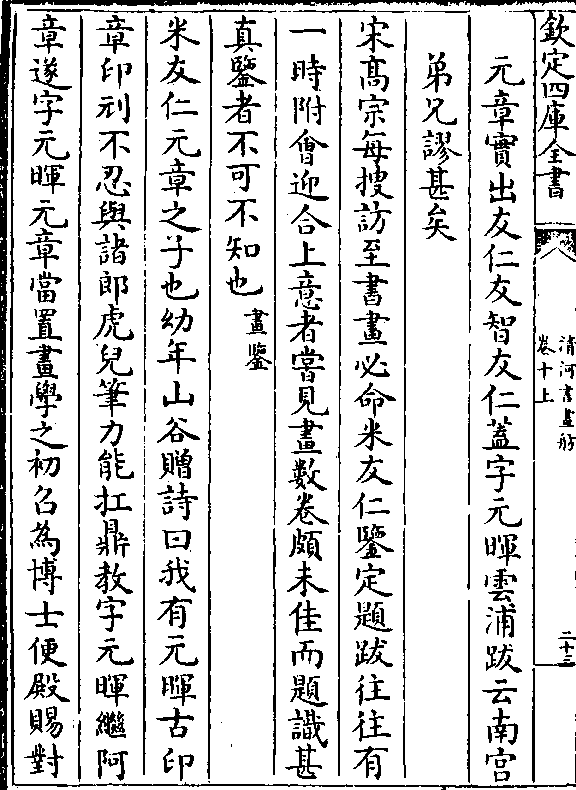 欽定四庫全書
清河書畫舫
卷十上
二十三
元章實出友仁友智友仁蓋字元暉雲浦跋云南宫
弟兄謬甚矣
宋髙宗每搜訪至書畫必命米友仁鑒定題跋往往有
一時附㑹迎合上意者嘗見畫數卷頗未佳而題識甚
真鑒者不可不知也畫鑒
米友仁元章之子也幼年山谷贈詩曰我有元暉古印
章印刓不忍與諸郎虎兒筆力能扛鼎教字元暉繼阿
章遂字元暉元章當置畫學之初召為博士便殿賜對